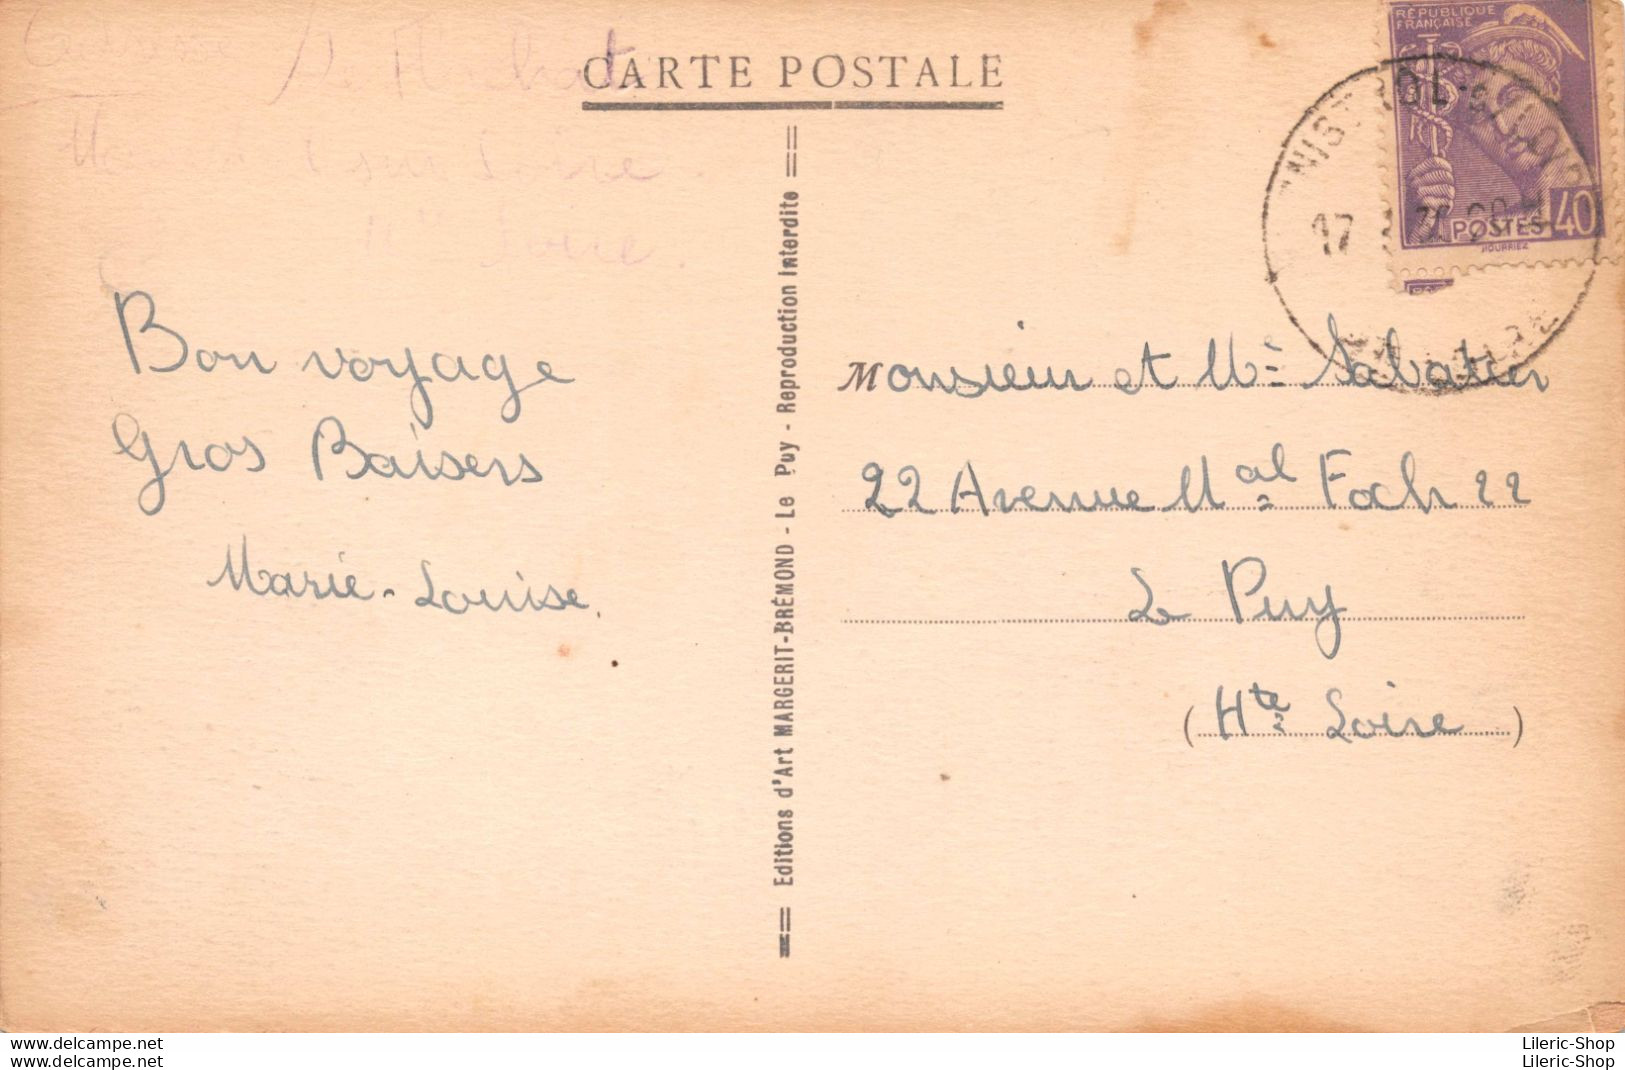 CARTE POSTALE
RÉPUBLIQUE
FRANÇAISE
POSTES 40
17
sur Loire.
Loire.
Bon voyage
Gros Baisers
Marie-Louise.
Editions d'Art MARGERIT-BRÉMOND - Le Puy - Reproduction interdite
Monsieur et Me Sabatier
22 Avenue Mal Foch 22
Le Puy
(Hte Loire)
delcampe.net
Lileric-Shop
delcampe.net
Lileric-Shop